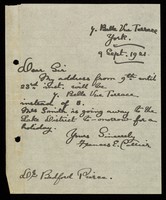 7. Belle Vue Terrace,
York.
9 Sept. 1921.
Dear Sir
My address from 9th until
23rd Sept. will be
7. Belle Vue Terrace
instead of 8.
Mrs Smith is going away to the
Lake District to-morrow for a
holiday.
Yours Sincerely,
Frances E.
Dr Bedford Pierce.